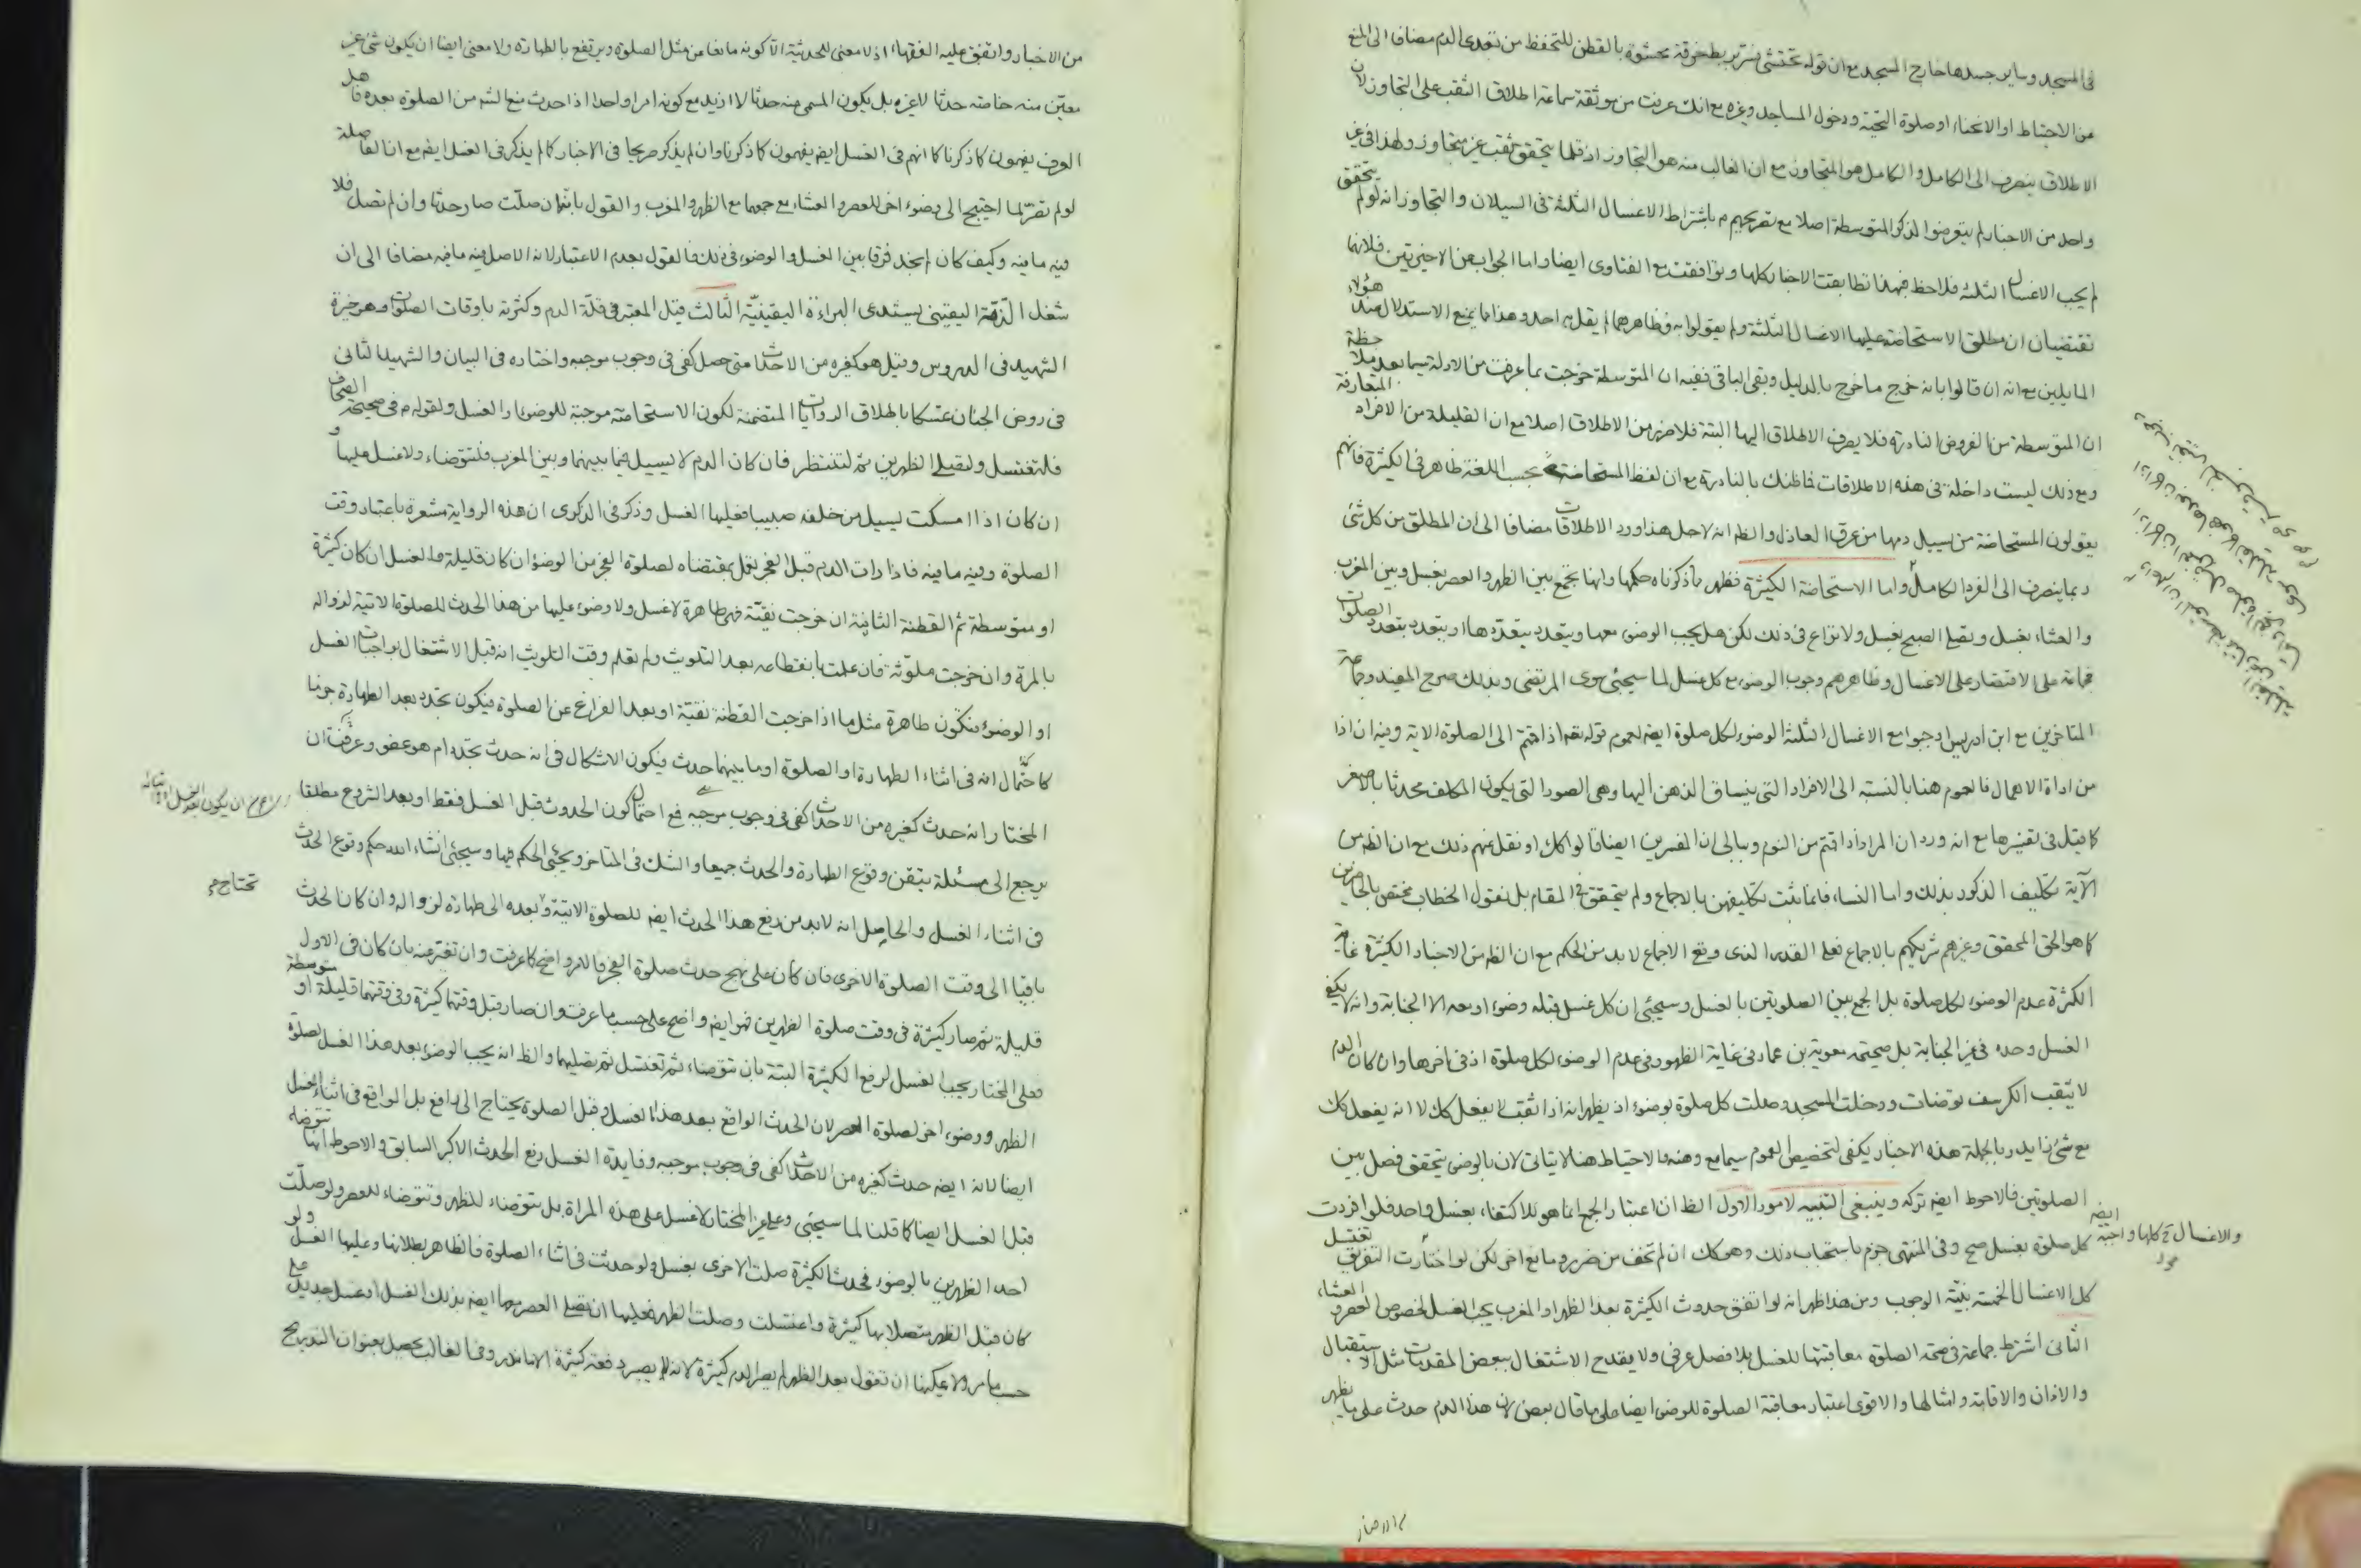 في المسجد وساير جسدها خارج المسجد مع ان قوله تحتشي وتستثفر بربط خرقة محشوة بالقطن للتحفظ من تعدى الدم مضافا الى المنع
من الاحتباط او الانحناء او صلوة التحية ودخول المساجد وغيره مع انك عرفت من موثقة سماعة اطلاق الثقب على التجاوز لان
الاطلاق ينصرف الى الكامل والكامل هو المتجاوز مع ان الغالب منه هو التجاوز اذ قلما يتحقق ثقب غير متجاوز ولهذا في غير
واحد من الاخبار لم يتعرضوا لذكر المتوسطة اصلا مع تصريحهم م باشتراط الاغسال الثلثة في السيلان والتجاوز انه لو لم يتحقق
لم يجب الاغسال الثلثة فلاحظ فبهذا تطابقت الاخبار كلها وتوافقت مع الفتاوى ايضا واما الجواب عن الاخيرتين فلانهما
تقتضيان ان مطلق الاستحاضة عليها الاغسال الثلثة ولم يقولوا به فظاهرهما لم يقل به احد وهذا مما يمنع الاستدلال عند هؤلاء
القايلين مع انه ان قالوا بانه خرج ما خرج بالدليل وبقى الباقي ففيه ان المتوسطة خرجت بما عرفت من الادلة سيما بعد ملاحظة
ان المتوسطة من الفروض النادرة فلا يصرف الاطلاق اليها البتة فلا ضرر من الاطلاق اصلا مع ان القليلة من الافراد المتعارفة
ومع ذلك ليست داخلة في هذه الاطلاقات فما ظنك بالنادرة مع ان لفظ المستحاضة بحسب اللغة ظاهر في الكثيرة فانهم
يقولون المستحاضة من يسيل دمها من عرق العاذل والظ انه لاجل هذا ورد الاطلاقات مضافا الى ان المطلق من كل شئ
ربما ينصرف الى الفرد الكامل واما الاستحاضة الكثيرة فظهر مما ذكرناه حكمها وانها تجمع بين الظهر والعصر بغسل وبين المغرب
والعشاء بغسل وتصلي الصبح بغسل ولا نزاع في ذلك لكن هل يجب الوضوء معها ويتعدد بتعددها او يتعدد بتعدد الصلوات
فجماعة على الاقتصار على الاغسال وظاهرهم وجوب الوضوء مع كل غسل لما سيجئ سوى المرتضى وبذلك صرح المفيد وجماعة
المتاخرين مع ابن ادريس اوجبوا مع الاغسال الثلثة الوضوء لكل صلوة ايضا لعموم قوله تعه اذا قمتم الى الصلوة الاية وفيه ان اذا
من اداة الاهمال فالعموم هنا بالنسبة الى الافراد التي ينساق الذهن اليها وهي الصور التي يكون المكلف محدثا بالاصغر
كما قيل في تفسيرها مع انه ورد ان المراد اذا قمتم من النوم وببالي ان المفسرين ايضا قالوا كك او نقل عنهم ذلك مع ان الظ من
الآية تكليف الذكور بذلك واما النساء فانما يثبت تكليفهن بالاجماع ولم يتحقق في المقام بل نقول الخطاب مختص بالحاضرين
كما هو الحق المحقق وغيرهم شريكهم بالاجماع فعلى القدر الذي وقع الاجماع لابد من الحكم مع ان الظ من الاخبار الكثيرة غاية
الكثرة عدم الوضوء لكل صلوة بل الجمع بين الصلوتين بالغسل وسيجئ ان كل غسل قبله وضوء او بعده الا الجنابة وانه لا يكفي
الغسل وحده في غير الجنابة بل صحيحة معوية بن عمار في غاية الظهور في عدم الوضوء لكل صلوة اذ في اخرها وان كان الدم
لا يثقب الكرسف توضات ودخلت المسجد وصلت كل صلوة بوضوء اذ يظهر انه اذا ثقب لا يفعل كك لا انه يفعل كك
مع شئ زايد وبالجملة هذه الاخبار يكفي لتخصيص العموم سيما مع وهنه فالاحتياط هنا لا يتاتى لان بالوضوء يتحقق فصل بين
الصلوتين فالاحوط ايضا تركه وينبغي التنبيه لامور الاول الظ ان اعتبار الجمع انما هو للاكتفاء بغسل واحد فلو افردت
كل صلوة بغسل صح وفي المنتهى جزم باستحباب ذلك وهو كك ان لم تخف من ضرر ومانع اخر لكن لو اختارت التفريق تغتسل
كل الاغسال الخمسة بنية الوجوب ومن هذا ظهر انه لو اتفق حدوث الكثيرة بعد الظهر او المغرب يجب الغسل لخصوص العصر والعشاء
الثاني اشترط جماعة في صحة الصلوة معاقبتها للغسل بلا فصل عرفي ولا يقدح الاشتغال ببعض المقدمات مثل الاستقبال
والاذان والاقامة وامثالها والاقوى اعتبار معاقبة الصلوة للوضوء ايضا على ما قال بعض لان هذا الدم حدث على ما يظهر
والاغسال ح كلها واجبة ايضا
من الاخبار
من الاخبار واتفق عليه الفقهاء اذ لا معنى للحدثية الا كونه مانعا من مثل الصلوة ويرتفع بالطهارة ولا معنى ايضا ان يكون شئ غير
معين منه خاصة حدثا لا غيره بل يكون المسمى منه حدثا لا ازيد مع كونه امرا واحدا اذا حدث منع الشم من الصلوة بعده فاهل
العرف يفهمون كما ذكرنا كما انهم في الغسل ايضا يفهمون كما ذكرنا وان لم يذكر صريحا في الاخبار كما لم يذكر في الغسل ايضا مع ان الفاصلة
لو لم تضر لما احتيج الى وضوء اخر للعصر والعشاء مع جمعهما مع الظهر والمغرب والقول بانها ان صلت صار حدثا وان لم تصل فلا
فيه ما فيه وكيف كان لم نجد فرقا بين الغسل والوضوء في ذلك فالقول بعدم الاعتبار لانه الاصل فيه ما فيه مضافا الى ان
شغل الذمة اليقيني يستدعى البراءة اليقينية الثالث قيل المعتبر في قلة الدم وكثرته باوقات الصلوات وهو خيرة
الشهيد في الدروس وقيل هو كغيره من الاحداث متى حصل كفى في وجوب موجبه واختاره في البيان والشهيد الثاني
في روض الجنان تمسكا باطلاق الروايات المتضمنة لكون الاستحاضة موجبة للوضوء او الغسل ولقوله م في صحيحة الصحاف
فلتغتسل ولتصلي الظهرين ثم لتنتظر فان كان الدم لا يسيل فيما بينهما وبين المغرب فلتتوضاء ولا غسل عليها و
ان كان اذا امسكت يسيل من خلفه صبيبا فعليها الغسل وذكر في الذكرى ان هذه الرواية مشعرة باعتبار وقت
الصلوة وفيه ما فيه فاذا رات الدم قبل الفجر تعمل بمقتضاه لصلوة الفجر من الوضوء ان كان قليلة والغسل ان كان كثيرة
او متوسطة ثم القطنة الثانية ان خرجت نقية فهي طاهرة لا غسل ولا وضوء عليها من هذا الحدث للصلوة الاتية لزواله
بالمرة وان خرجت ملوثة فان علمت بانقطاعه بعد التلويث ولم تعلم وقت التلويث انه قبل الاشتغال بواجبات الغسل
او الوضوء فتكون طاهرة مثل ما اذا خرجت القطنة نقية او بعد الفراغ عن الصلوة فيكون تجدد بعد الطهارة جزما
كاحتمال انه في اثناء الطهارة او الصلوة او ما بينهما حدث فيكون الاشكال في انه حدث تجدد ام هو عفو وعرفت ان
المختار انه حدث كغيره من الاحداث كفى في وجوب موجبه فمع احتمال كون الحدوث قبل الغسل فقط او بعد الشروع مطلقا
يرجع الى مسئلة تيقن وقوع الطهارة والحدث جميعا والشك في المتاخر ويجئ الحكم فيها وسيجئ انشاء الله حكم وقوع الحدث
تحتاج م
في اثناء الغسل والحاصل انه لابد من رفع هذا الحدث ايضا للصلوة الاتية وبعده الى طهارة لزواله وان كان الحدث
باقيا الى وقت الصلوة الاخرى فان كان على نهج حدث صلوة الفجر فالامر واضح كما عرفت وان تغير عنه بان كان في الاول
قليلة ثم صار كثيرة في وقت صلوة الظهرين فهو ايضا واضح على حسب ما عرفت وان صار قبل وقتها كثيرة وفي وقتها قليلة او متوسطة
فعلى المختار يجب الغسل لرفع الكثيرة البتة بان تتوضاء ثم تغتسل ثم تصليهما والظ انه يجب الوضوء بعد هذا الغسل لصلوة
الظهر ووضوء اخر لصلوة العصر لان الحدث الواقع بعد هذا الغسل وقبل الصلوة يحتاج الى رافع بل الواقع في اثناء الغسل
ايضا لانه ايضا حدث كغيره من الاحداث كفى في وجوب موجبه وفايدة الغسل رفع الحدث الاكبر السابق والاحوط انها تتوضا
قبل الغسل ايضا كما قلنا لما سيجئ وعلى غير المختار لا غسل على هذه المراة بل تتوضاء للظهر وتتوضاء للعصر ولو صلت
احد الظهرين بالوضوء فحدث الكثيرة صلت الاخرى بغسل ولو حدثت في اثناء الصلوة فالظاهر بطلانها وعليها الغسل ولو
كان قبل الظهر متصلا بها كثيرة واغتسلت وصلت الظهر فعليها ان تصلي العصر معها ايضا بذلك الغسل او غسل جديد على
حسب ما مر ولا يمكنها ان تقول بعد الظهر لم يصر الدم كثيرة لانه لا يصير دفعة كثيرة الا نادر وفي الغالب يحصل بعنوان التدريج